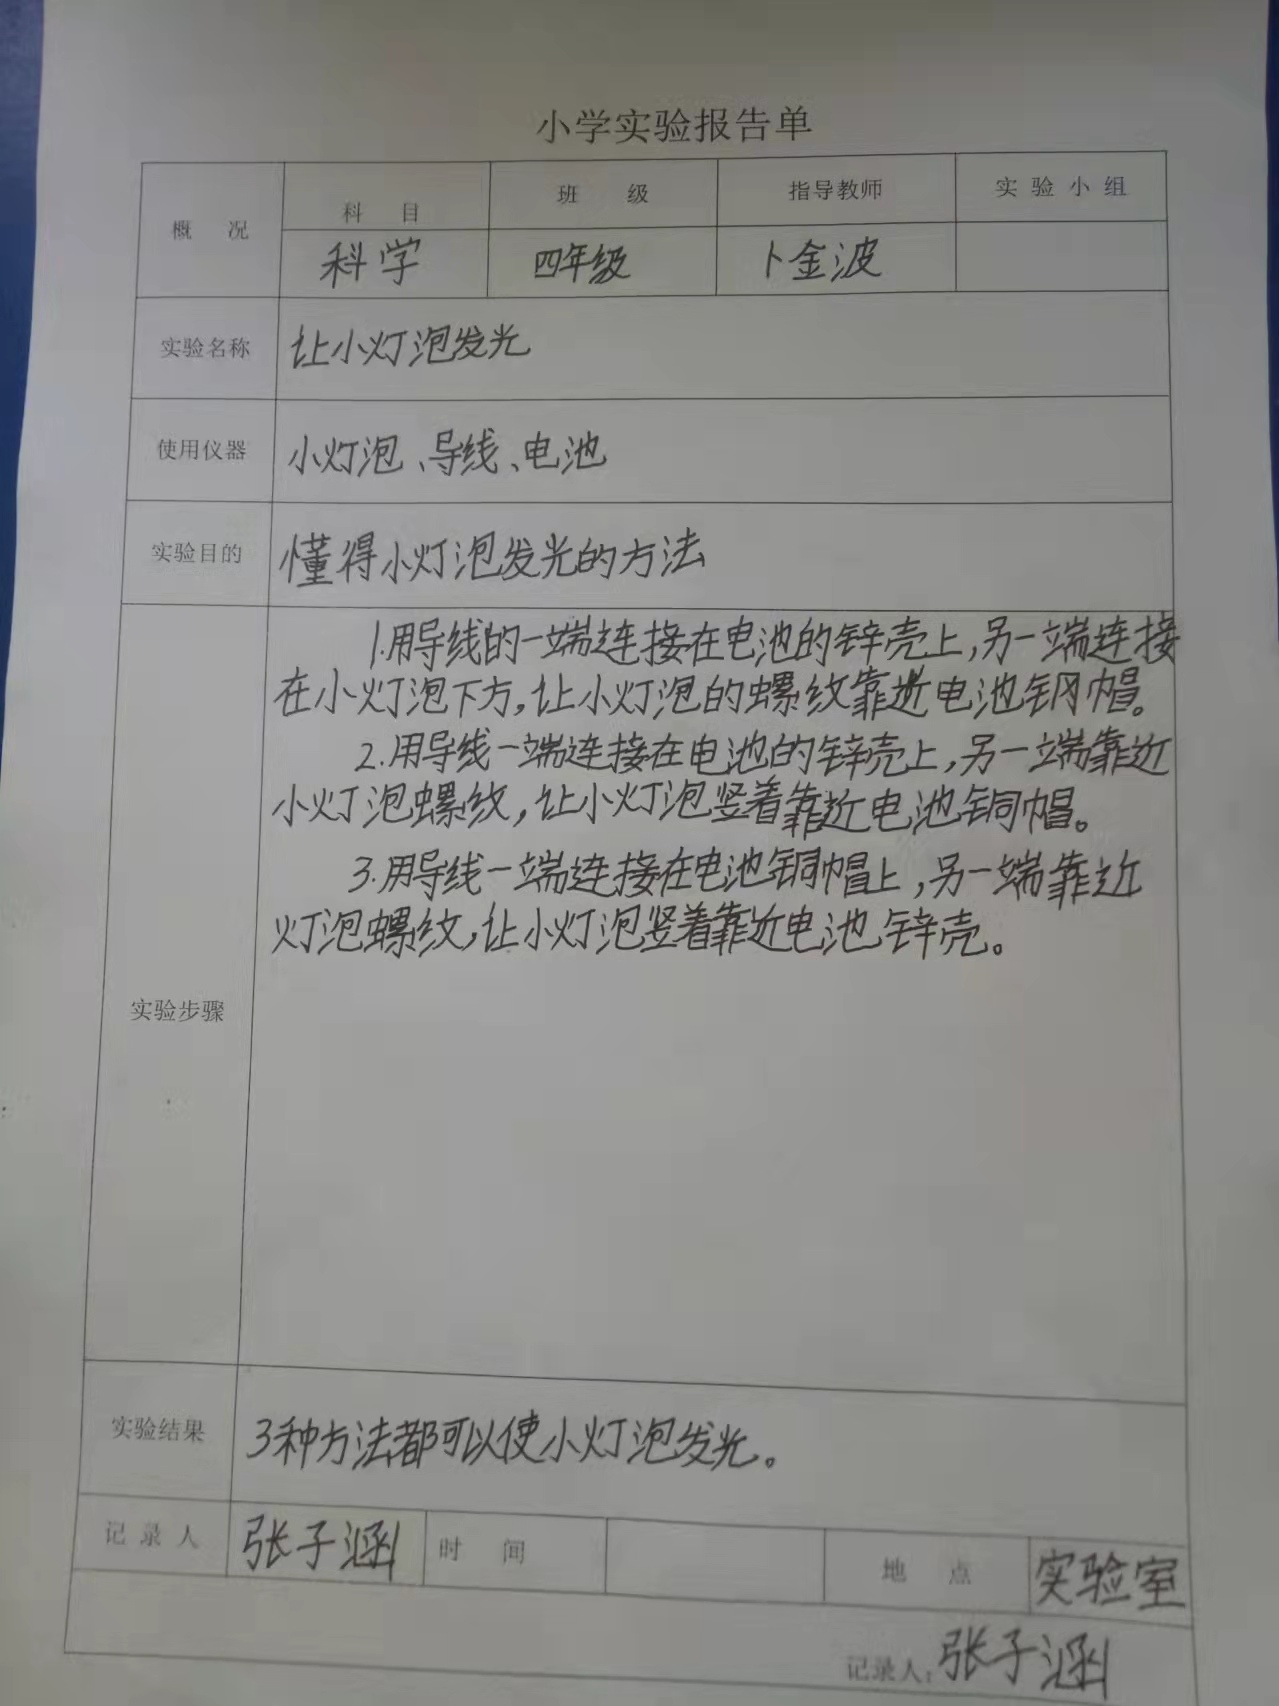 小学实验报告单
概 况 科 目 班 级 指导教师 实 验 小 组
科学 四年级 卜金波
实验名称 让小灯泡发光
使用仪器 小灯泡、导线、电池
实验目的 懂得小灯泡发光的方法
1.用导线的一端连接在电池的锌壳上,另一端连接
在小灯泡下方,让小灯泡的螺纹靠近电池铜帽。
2.用导线一端连接在电池的锌壳上,另一端靠近
小灯泡螺纹,让小灯泡竖着靠近电池铜帽。
3.用导线一端连接在电池铜帽上,另一端靠近
灯泡螺纹,让小灯泡竖着靠近电池锌壳。
实验步骤
实验结果 3种方法都可以使小灯泡发光。
记 录 人 张子涵 时 间 地 点 实验室
记录人:张子涵